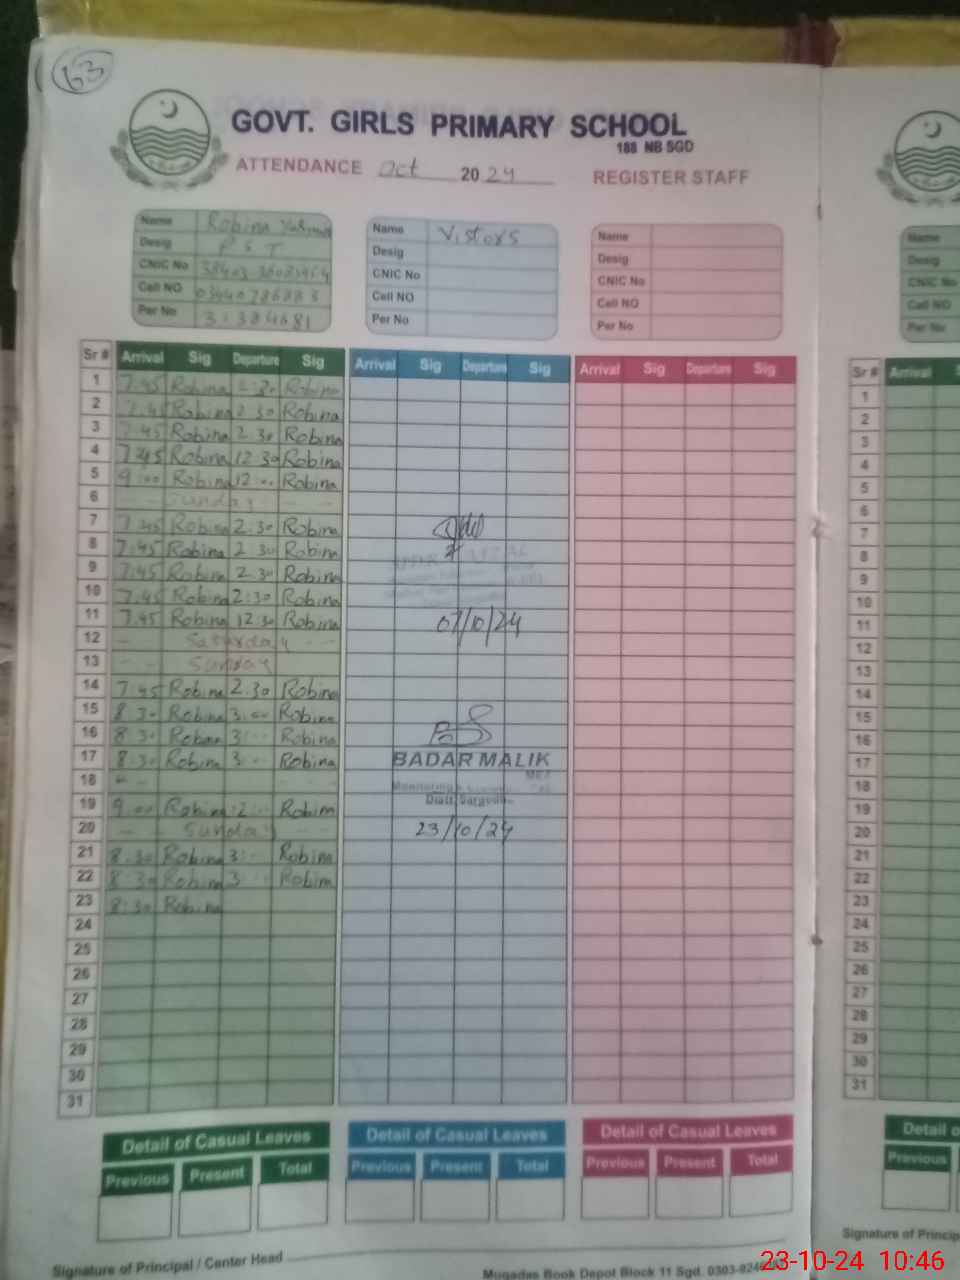 63
GOVT. GIRLS PRIMARY SCHOOL
188 NB SGD
ATTENDANCE Oct 2024 REGISTER STAFF
Name Robina Name Vistors Name Name
Desig PST Desig Desig Desig
CNIC No CNIC No CNIC No CNIC No
Cell NO Cell NO Cell NO Cell NO
Per No Per No Per No Per No
Sr # Arrival Sig Departure Sig Arrival Sig Departure Sig Arrival Sig Departure Sig Sr # Arrival
1 7.45 Robina 2.30 Robina 1
2 7.45 Robina 2.30 Robina 2
3 7.45 Robina 2.30 Robina 3
4 7.45 Robina 12.30 Robina 4
5 9:00 Robina 12:00 Robina 5
6 - - Sunday - - 6
7 7.45 Robina 2.30 Robina 7
8 7.45 Robina 2.30 Robina 8
9 7.45 Robina 2.30 Robina 9
10 7.45 Robina 2:30 Robina 10
11 7.45 Robina 12.30 Robina 07/10/24 11
12 - Saturday - - 12
13 - - Sunday 13
14 7.45 Robina 2.30 Robina 14
15 8.30 Robina 3:00 Robina 15
16 8.30 Robina 3:00 Robina 16
17 8:30 Robina 3:00 Robina BADAR MALIK 17
18 - - 18
Monitoring
19 9:00 Robina 12:00 Robina Distt. Sargodha 19
20 - - Sunday - - 23/10/24 20
21 8:30 Robina 3:- Robina 21
22 8:30 Robina 3:00 Robina 22
23 8:30 Robina 23
24 24
25 25
26 26
27 27
28 28
29 29
30 30
31 31
Detail of Casual Leaves Detail of Casual Leaves Detail of Casual Leaves Detail
Previous Present Total Previous Present Total Previous Present Total Previous
Signature of Principal / Center Head Signature of Princip
Muqadas Book Depot Block 11 Sgd. 0303-
23-10-24 10:46